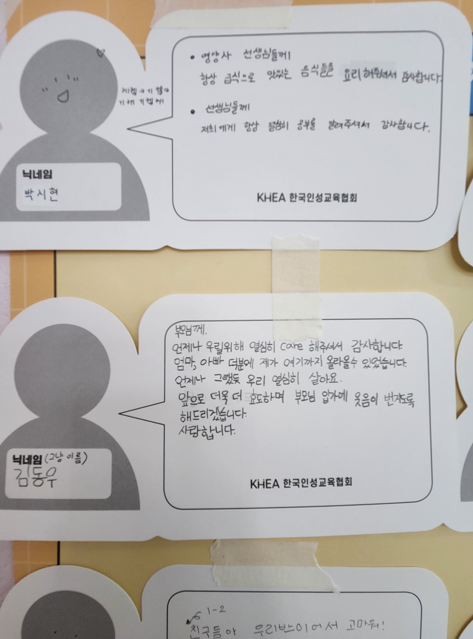 • 영양사 선생님들께!
항상 급식으로 맛있는 음식들을 요리해주셔서 감사합니다.
• 선생님들께
저희에게 항상 열심히 공부를 알려주셔서 감사합니다.
닉네임
박시현
KHEA 한국인성교육협회
부모님께.
언제나 우릴위해 열심히 care 해주셔서 감사합니다
엄마, 아빠 덕분에 제가 여기까지 올라올수 있었습니다
언제나 그랬듯 우리 열심히 살아요.
앞으로 더욱 더 효도하며 부모님 입가에 웃음이 번지도록
해드리겠습니다
사랑합니다.
닉네임 (그냥 이름)
김동우
KHEA 한국인성교육협회
1-2
친구들아 우리반이어서 고마워!